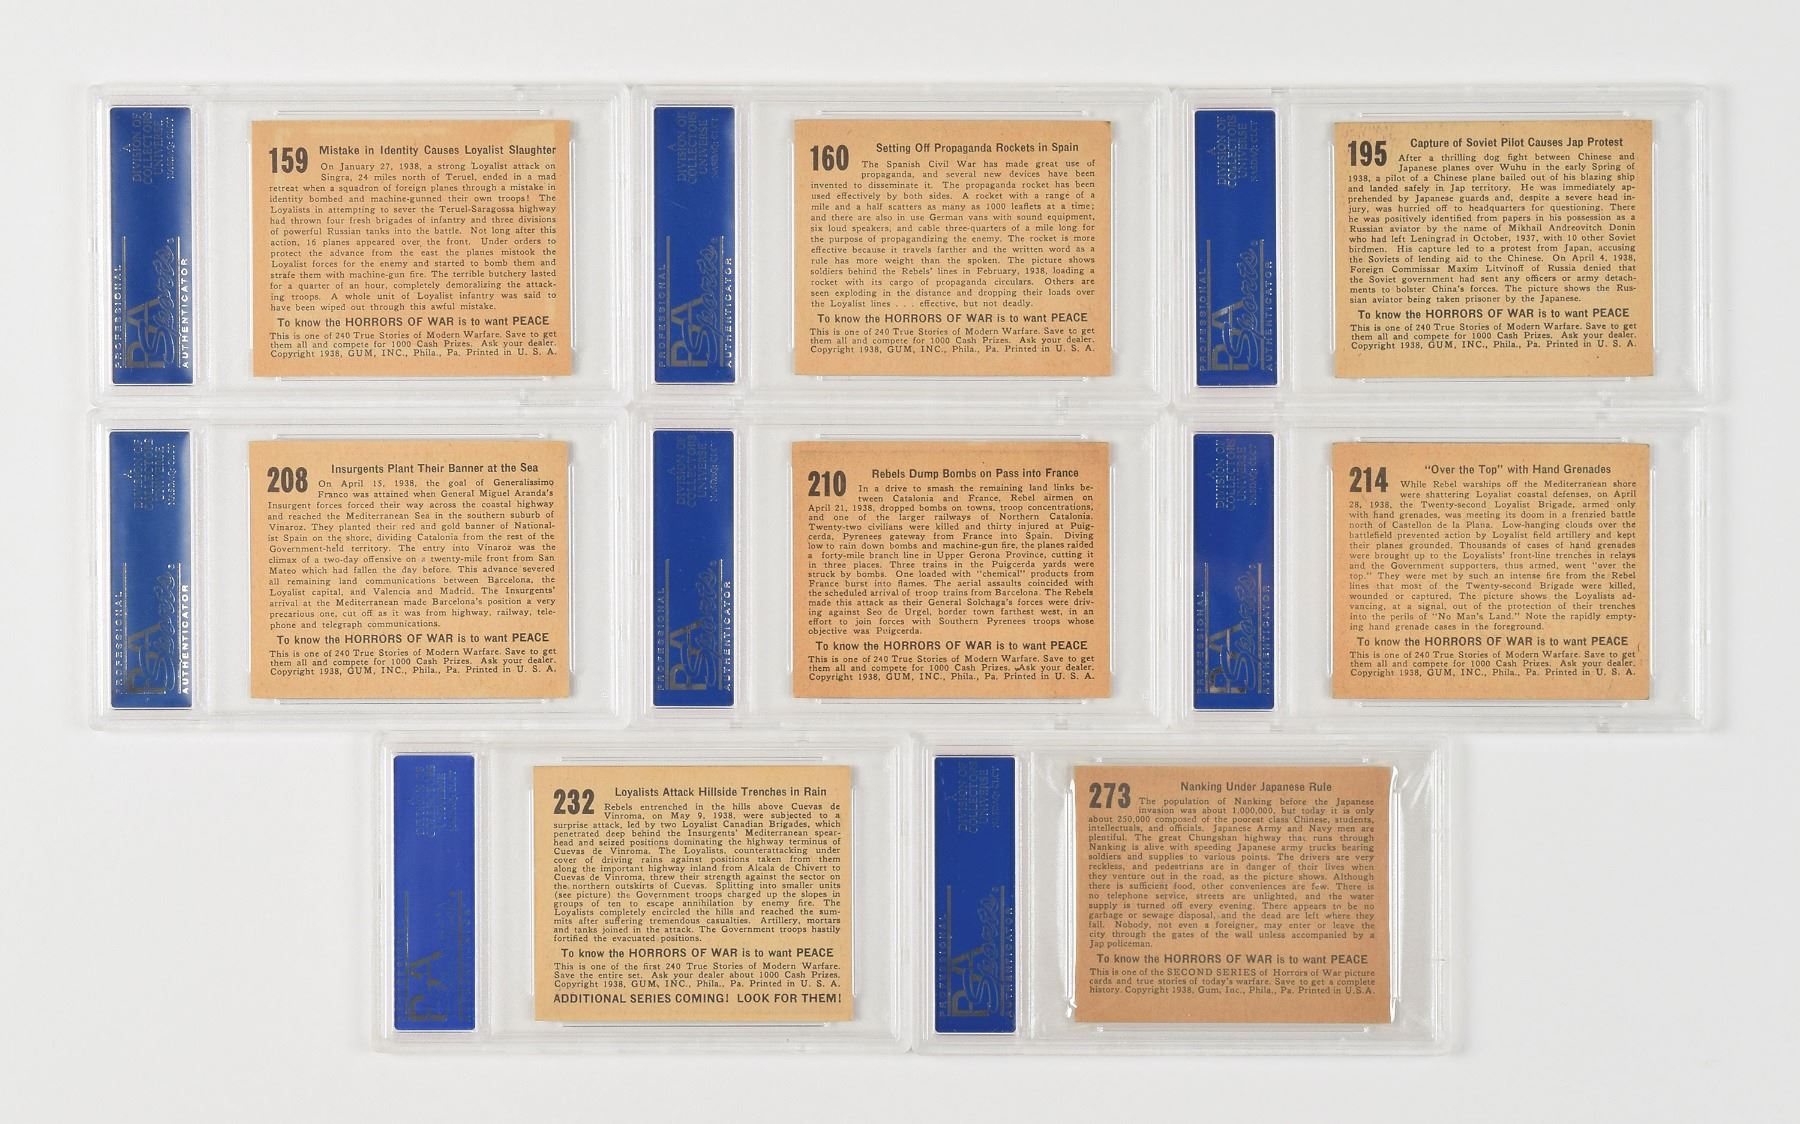 159
Mistake in Identity Causes Loyalist Slaughter
On January 27, 1938, a strong Loyalist attack on
Singra, 24 miles north of Teruel, ended in a mad
retreat when a squadron of foreign planes through a mistake in
identity bombed and machine-gunned their own troops! The
Loyalists in attempting to sever the Teruel-Saragossa highway
had thrown four fresh brigades of infantry and three divisions
of powerful Russian tanks into the battle. Not long after this
action, 16 planes appeared over the front. Under orders to
protect the advance from the east the planes mistook the
Loyalist forces for the enemy and started to bomb them and
strafe them with machine-gun fire. The terrible butchery lasted
for a quarter of an hour, completely demoralizing the attack-
ing troops. A whole unit of Loyalist infantry was said to
have been wiped out through this awful mistake.
To know the HORRORS OF WAR is to want PEACE
This is one of 240 True Stories of Modern Warfare. Save to get
them all and compete for 1000 Cash Prizes. Ask your dealer.
Copyright 1938, GUM, INC., Phila., Pa. Printed in U. S. A.
A
DIVISION OF
COLLECTORS
UNIVERSE
NASDAQ: CLCT
PROFESSIONAL
PSA
Sports
AUTHENTICATOR
160
Setting Off Propaganda Rockets in Spain
The Spanish Civil War has made great use of
propaganda, and several new devices have been
invented to disseminate it. The propaganda rocket has been
used effectively by both sides. A rocket with a range of a
mile and a half scatters as many as 1000 leaflets at a time;
and there are also in use German vans with sound equipment,
six loud speakers, and cable three-quarters of a mile long for
the purpose of propagandizing the enemy. The rocket is more
effective because it travels farther and the written word as a
rule has more weight than the spoken. The picture shows
soldiers behind the Rebels' lines in February, 1938, loading a
rocket with its cargo of propaganda circulars. Others are
seen exploding in the distance and dropping their loads over
the Loyalist lines . . . effective, but not deadly.
To know the HORRORS OF WAR is to want PEACE
This is one of 240 True Stories of Modern Warfare. Save to get
them all and compete for 1000 Cash Prizes. Ask your dealer.
Copyright 1938, GUM, INC., Phila., Pa. Printed in U. S. A.
A
DIVISION OF
COLLECTORS
UNIVERSE
NASDAQ: CLCT
PROFESSIONAL
PSA
Sports
AUTHENTICATOR
195
Capture of Soviet Pilot Causes Jap Protest
After a thrilling dog fight between Chinese and
Japanese planes over Wuhu in the early Spring of
1938, a pilot of a Chinese plane bailed out of his blazing ship
and landed safely in Jap territory. He was immediately ap-
prehended by Japanese guards and, despite a severe head in-
jury, was hurried off to headquarters for questioning. There
he was positively identified from papers in his possession as a
Russian aviator by the name of Mikhail Andreovitch Donin
who had left Leningrad in October, 1937, with 10 other Soviet
birdmen. His capture led to a protest from Japan, accusing
the Soviets of lending aid to the Chinese. On April 4, 1938,
Foreign Commissar Maxim Litvinoff of Russia denied that
the Soviet government had sent any officers or army detach-
ments to bolster China's forces. The picture shows the Rus-
sian aviator being taken prisoner by the Japanese.
To know the HORRORS OF WAR is to want PEACE
This is one of 240 True Stories of Modern Warfare. Save to get
them all and compete for 1000 Cash Prizes. Ask your dealer.
Copyright 1938, GUM, INC., Phila., Pa. Printed in U. S. A.
A
DIVISION OF
COLLECTORS
UNIVERSE
NASDAQ: CLCT
PROFESSIONAL
PSA
Sports
AUTHENTICATOR
208
Insurgents Plant Their Banner at the Sea
On April 15, 1938, the goal of Generalissimo
Franco was attained when General Miguel Aranda's
Insurgent forces forced their way across the coastal highway
and reached the Mediterranean Sea in the southern suburb of
Vinaroz. They planted their red and gold banner of National-
ist Spain on the shore, dividing Catalonia from the rest of the
Government-held territory. The entry into Vinaroz was the
climax of a two-day offensive on a twenty-mile front from San
Mateo which had fallen the day before. This advance severed
all remaining land communications between Barcelona, the
Loyalist capital, and Valencia and Madrid. The Insurgents'
arrival at the Mediterranean made Barcelona's position a very
precarious one, cut off as it was from highway, railway, tele-
phone and telegraph communications.
To know the HORRORS OF WAR is to want PEACE
This is one of 240 True Stories of Modern Warfare. Save to get
them all and compete for 1000 Cash Prizes. Ask your dealer.
Copyright 1938, GUM, INC., Phila., Pa. Printed in U. S. A.
A
DIVISION OF
COLLECTORS
UNIVERSE
NASDAQ: CLCT
PROFESSIONAL
PSA
Sports
AUTHENTICATOR
210
Rebels Dump Bombs on Pass into France
In a drive to smash the remaining land links be-
tween Catalonia and France, Rebel airmen on
April 21, 1938, dropped bombs on towns, troop concentrations,
and one of the larger railways of Northern Catalonia.
Twenty-two civilians were killed and thirty injured at Puig-
cerda, Pyrenees gateway from France into Spain. Diving
low to rain down bombs and machine-gun fire, the planes raided
a forty-mile branch line in Upper Gerona Province, cutting it
in three places. Three trains in the Puigcerda yards were
struck by bombs. One loaded with "chemical" products from
France burst into flames. The aerial assaults coincided with
the scheduled arrival of troop trains from Barcelona. The Rebels
made this attack as their General Solchaga's forces were driv-
ing against Seo de Urgel, border town farthest west, in an
effort to join forces with Southern Pyrenees troops whose
objective was Puigcerda.
To know the HORRORS OF WAR is to want PEACE
This is one of 240 True Stories of Modern Warfare. Save to get
them all and compete for 1000 Cash Prizes. Ask your dealer.
Copyright 1938, GUM, INC., Phila., Pa. Printed in U. S. A.
A
DIVISION OF
COLLECTORS
UNIVERSE
NASDAQ: CLCT
PROFESSIONAL
PSA
Sports
AUTHENTICATOR
214
"Over the Top" with Hand Grenades
While Rebel warships off the Mediterranean shore
were shattering Loyalist coastal defenses, on April
28, 1938, the Twenty-second Loyalist Brigade, armed only
with hand grenades, was meeting its doom in a frenzied battle
north of Castellon de la Plana. Low-hanging clouds over the
battlefield prevented action by Loyalist field artillery and kept
their planes grounded. Thousands of cases of hand grenades
were brought up to the Loyalists' front-line trenches in relays
and the Government supporters, thus armed, went "over the
top." They were met by such an intense fire from the Rebel
lines that most of the Twenty-second Brigade were killed,
wounded or captured. The picture shows the Loyalists ad-
vancing, at a signal, out of the protection of their trenches
into the perils of "No Man's Land." Note the rapidly empty-
ing hand grenade cases in the foreground.
To know the HORRORS OF WAR is to want PEACE
This is one of 240 True Stories of Modern Warfare. Save to get
them all and compete for 1000 Cash Prizes. Ask your dealer.
Copyright 1938, GUM, INC., Phila., Pa. Printed in U. S. A.
A
DIVISION OF
COLLECTORS
UNIVERSE
NASDAQ: CLCT
PROFESSIONAL
PSA
Sports
AUTHENTICATOR
232
Loyalists Attack Hillside Trenches in Rain
Rebels entrenched in the hills above Cuevas de
Vinroma, on May 9, 1938, were subjected to a
surprise attack, led by two Loyalist Canadian Brigades, which
penetrated deep behind the Insurgents' Mediterranean spear-
head and seized positions dominating the highway terminus of
Cuevas de Vinroma. The Loyalists, counterattacking under
cover of driving rains against positions taken from them
along the important highway inland from Alcala de Chivert to
Cuevas de Vinroma, threw their strength against the sector on
the northern outskirts of Cuevas. Splitting into smaller units
(see picture) the Government troops charged up the slopes in
groups of ten to escape annihilation by enemy fire. The
Loyalists completely encircled the hills and reached the sum-
mits after suffering tremendous casualties. Artillery, mortars
and tanks joined in the attack. The Government troops hastily
fortified the evacuated positions.
To know the HORRORS OF WAR is to want PEACE
This is one of the first 240 True Stories of Modern Warfare.
Save the entire set. Ask your dealer about 1000 Cash Prizes.
Copyright 1938, GUM, INC., Phila., Pa. Printed in U. S. A.
ADDITIONAL SERIES COMING! LOOK FOR THEM!
PSA
273
Nanking Under Japanese Rule
The population of Nanking before the Japanese
invasion was about 1,000,000, but today it is only
about 250,000 composed of the poorest class Chinese, students,
intellectuals, and officials. Japanese Army and Navy men are
plentiful. The great Chungshan highway that runs through
Nanking is alive with speeding Japanese army trucks bearing
soldiers and supplies to various points. The drivers are very
reckless, and pedestrians are in danger of their lives when
they venture out in the road, as the picture shows. Although
there is sufficient food, other conveniences are few. There is
no telephone service, streets are unlighted, and the water
supply is turned off every evening. There appears to be no
garbage or sewage disposal, and the dead are left where they
fall. Nobody, not even a foreigner, may enter or leave the
city through the gates of the wall unless accompanied by a
Jap policeman.
To know the HORRORS OF WAR is to want PEACE
This is one of the SECOND SERIES of Horrors of War picture
cards and true stories of today's warfare. Save to get a complete
history. Copyright 1938, Gum, Inc., Phila., Pa. Printed in U.S.A.
A
DIVISION OF
COLLECTORS
UNIVERSE
NASDAQ: CLCT
PROFESSIONAL
PSA
Sports
AUTHENTICATOR